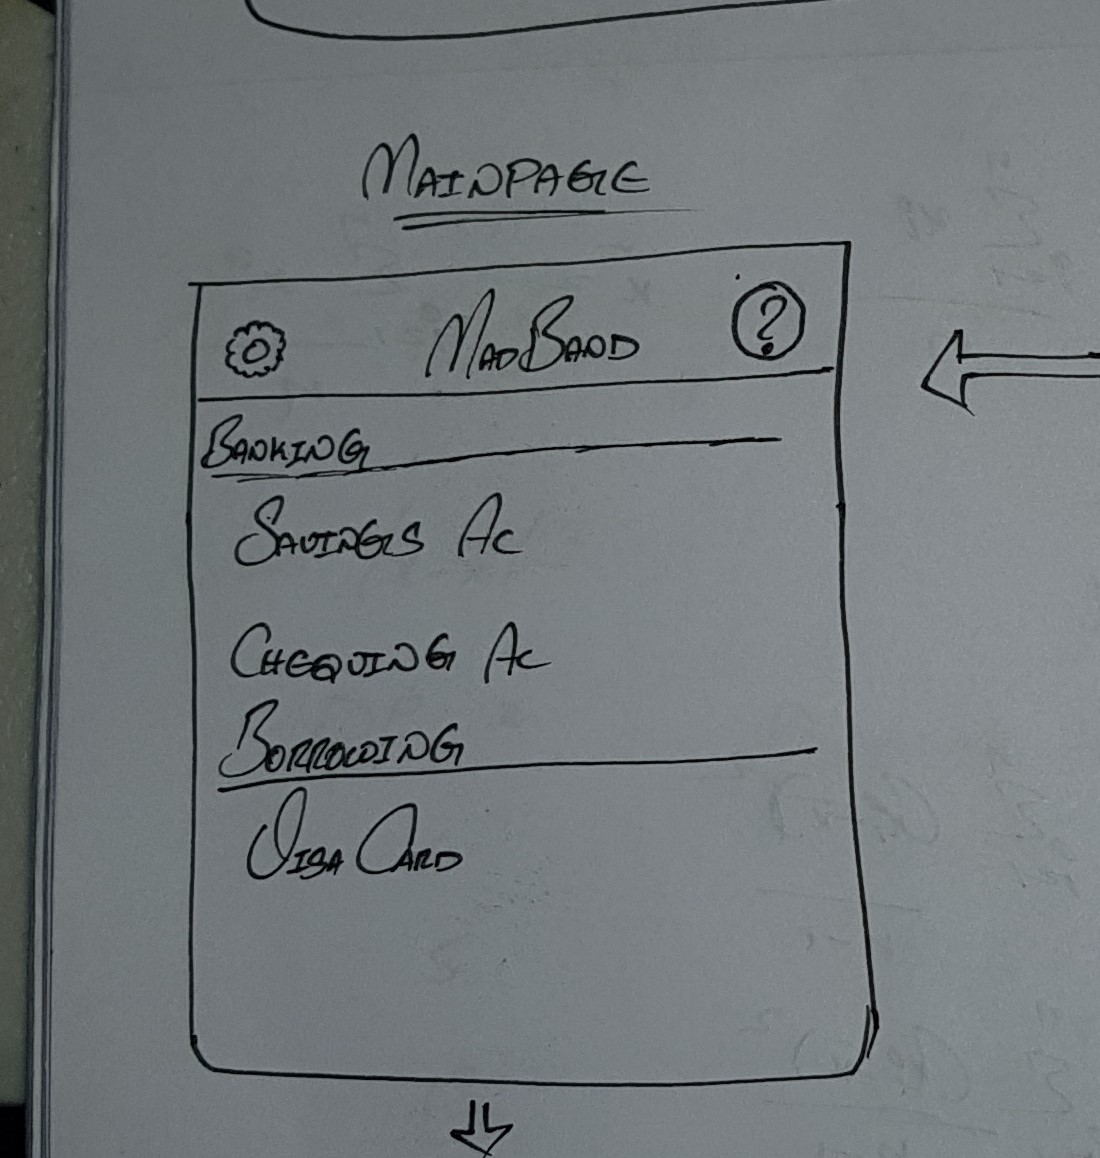 MAINPAGE
MADBAND ?
BANKING
SAVINGS AC
CHEQUING AC
BORROWING
VISA CARD